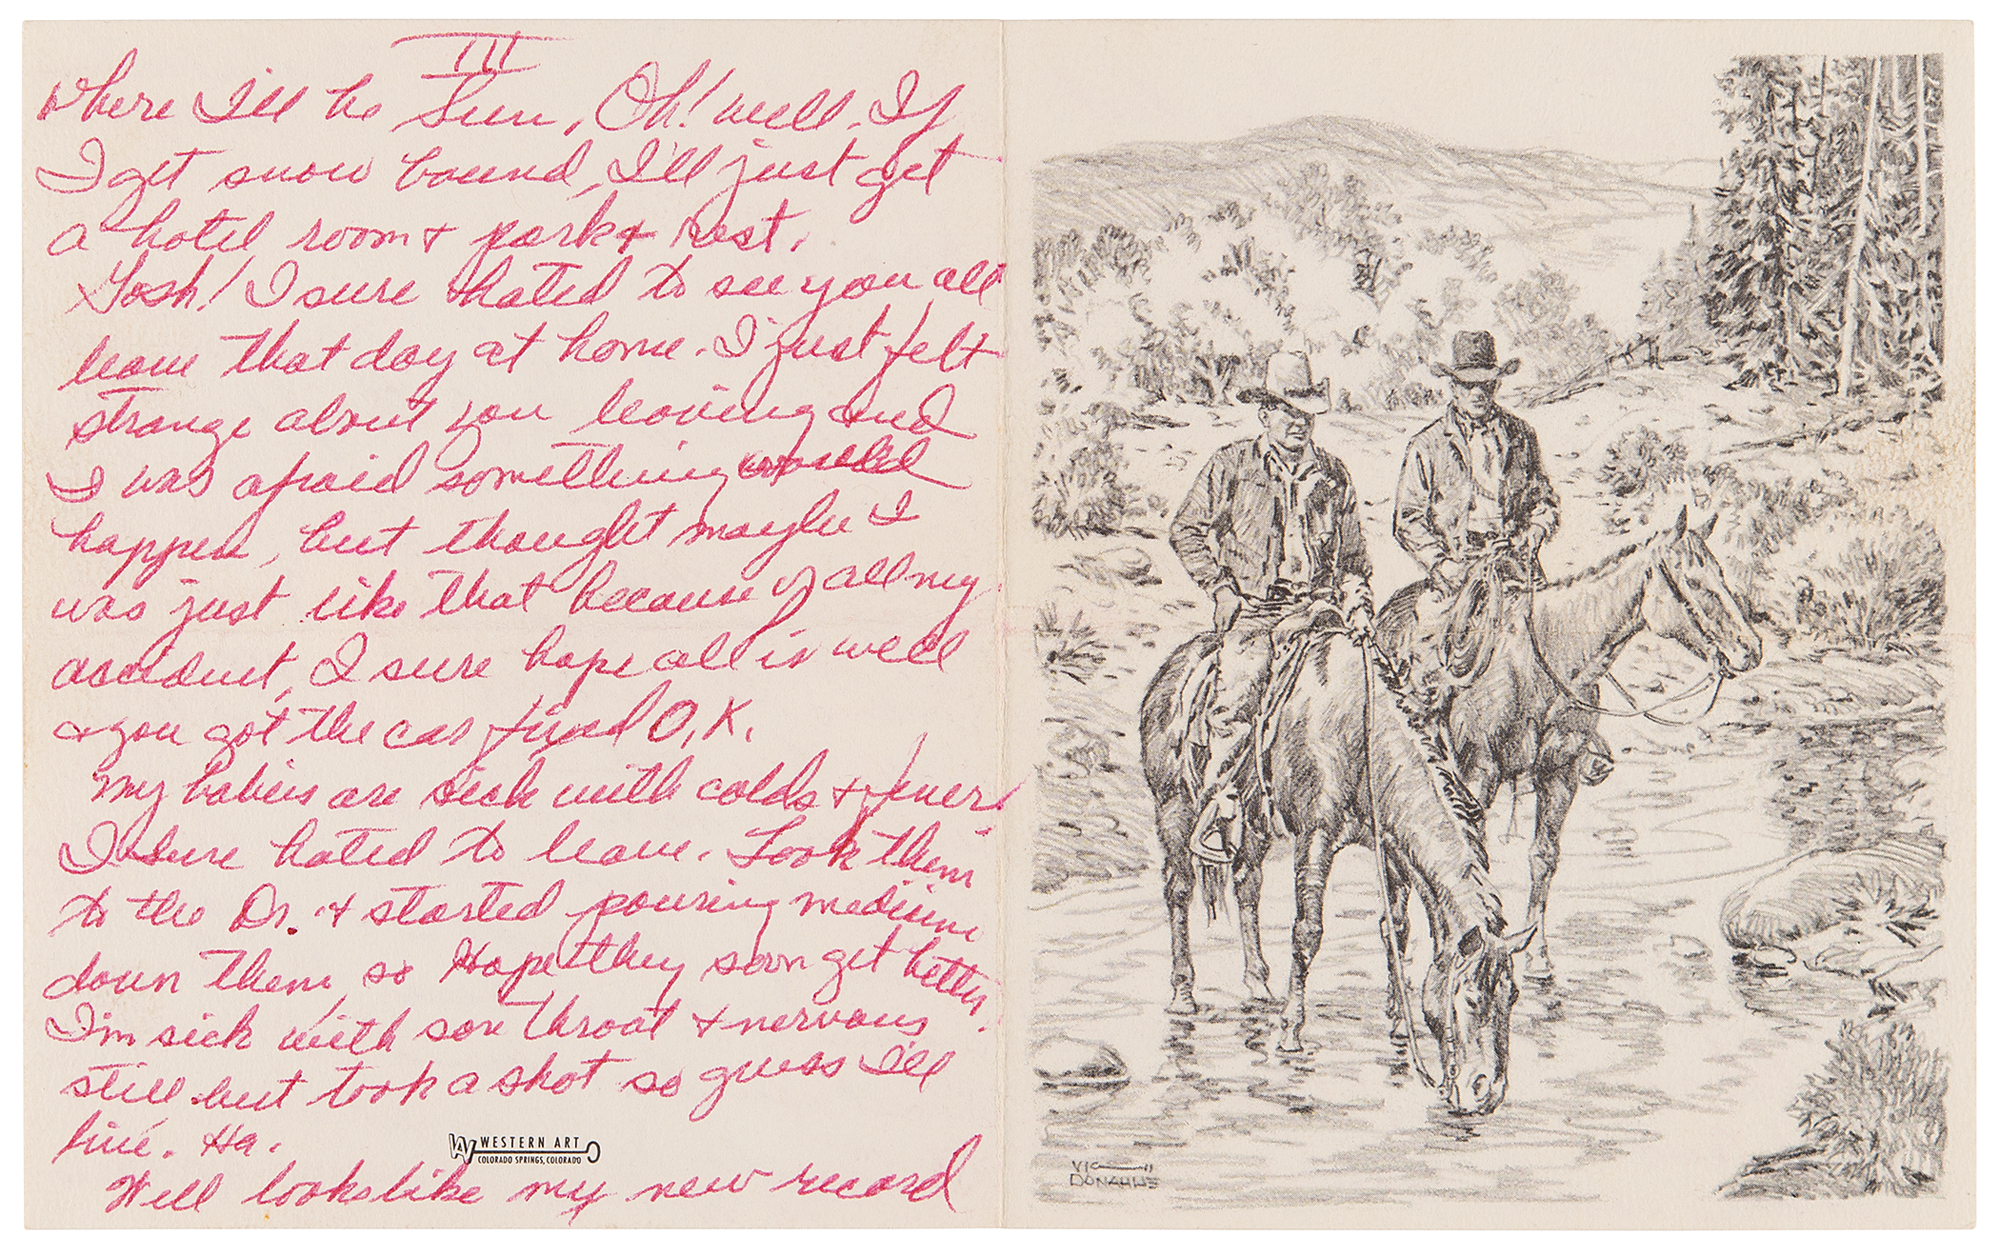 III
Where I'll be Sun, Oh! well. If
I get snow bound, I'll just get
a hotel room & park & Rest.
Gosh! I sure hated to see you all
leave that day at home. I just felt
strange about you leaving and
I was afraid something would
happen, but thought maybe I
was just like that because of all my
accident, I sure hope all is well
& you got the car fixed O.K.
My babies are sick with colds & fever.
I sure hated to leave. Took them
to the Dr. & started pouring medicine
down them so Hope they soon get better.
I'm sick with sore throat & nervous
still but took a shot so guess I'll
live. Ha.
WA WESTERN ART
COLORADO SPRINGS, COLORADO
Well looks like my new record
VIC
DONAHUE